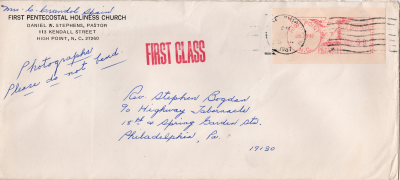 Mrs. C. Crandol Strain
FIRST PENTECOSTAL HOLINESS CHURCH
DANIEL W. STEPHENS, PASTOR
113 KENDALL STREET
HIGH POINT, N. C. 27260
Photographs
Please do not bend
FIRST CLASS
Rev Stephen Bogdan
℅ Highway Tabernacle
18th & Spring Garden Sts.
Philadelphia, Pa.
19130